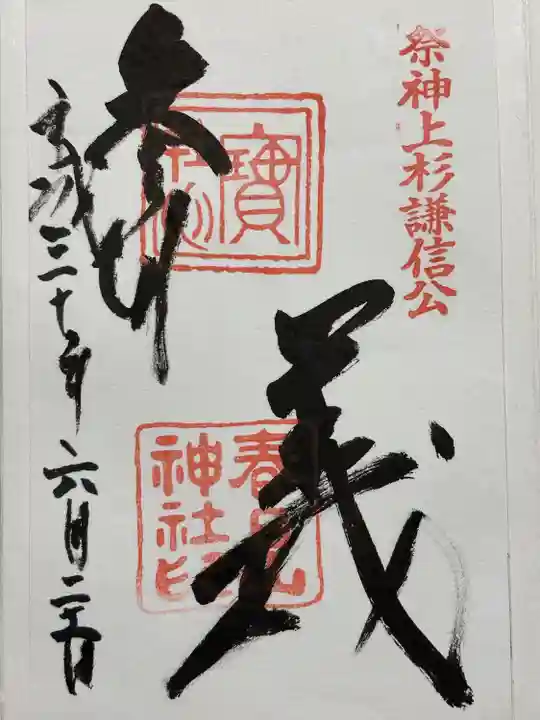 祭神上杉謙信公
義
参拝
平成三十年六月二十日
寶
春日山
神社印